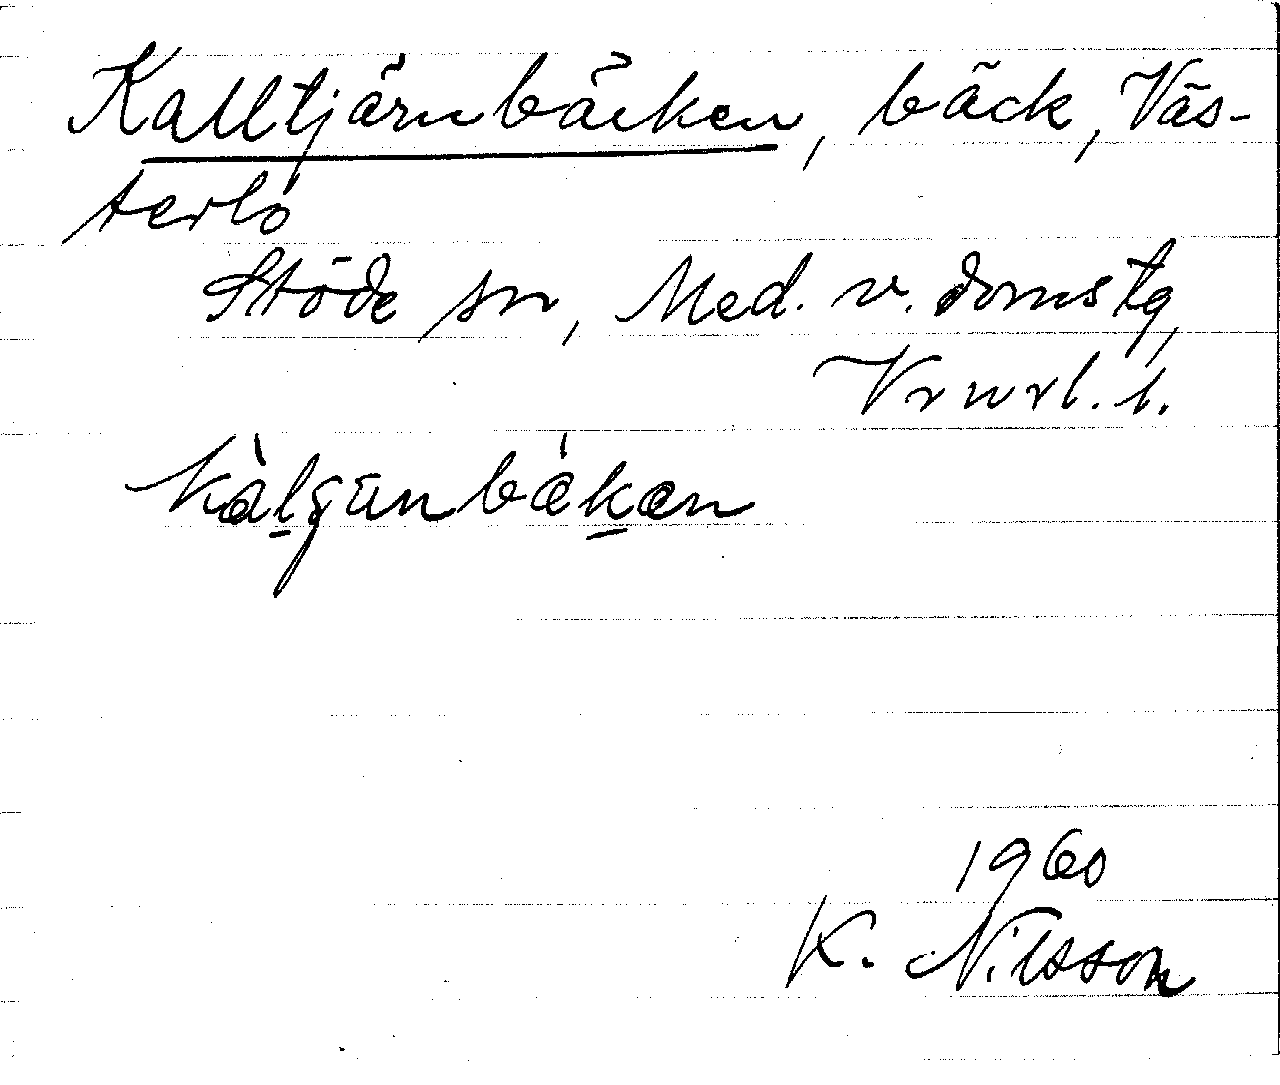 Kalltjärnbäcken, bäck, Väs-
terlo
Stöde sn, Med. v. domstg,
Vrnrl. l.
kàlʂunbákan
1960
K. Nilsson